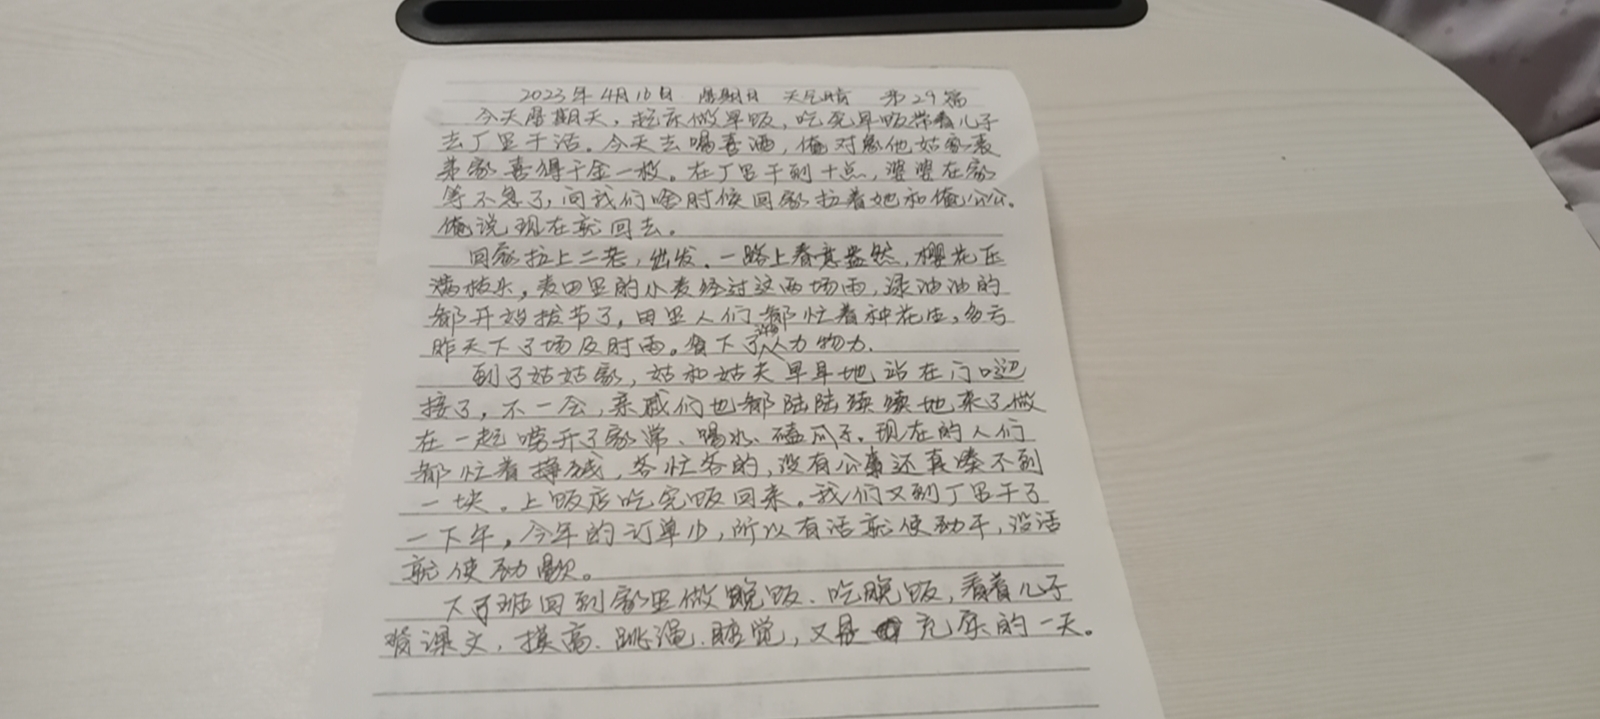 2023年4月16日 星期日 天气晴 第29篇
今天星期天，起床做早饭，吃完早饭带着儿子
去厂里干活。今天去喝喜酒，俺对象他姑家表
弟家喜得千金一枚。在厂里干到十点，婆婆在家
等不急了，问我们啥时候回家拉着她和俺公公。
俺说现在就回去。
回家拉上二老，出发。一路上春意盎然，樱花压
满枝头，麦田里的小麦经过这两场雨，绿油油的
都开始拔节了，田里人们都忙着种花生，多亏
昨天下了场及时雨。省下了人力物力.
到了姑姑家，姑和姑夫早早地站在门口迎
接了，不一会，亲戚们也都陆陆续续地来了做
在一起唠开了家常、喝水、磕瓜子。现在的人们
都忙着挣钱，各忙各的，没有公事还真凑不到
一块。上饭店吃完饭回来。我们又到厂里干了
一下午，今年的订单少，所以有活就使劲干，没活
就使劲歇。
下班回到家里做晚饭、吃晚饭，看着儿子
背课文，摸高、跳绳、睡觉，又是充实的一天。